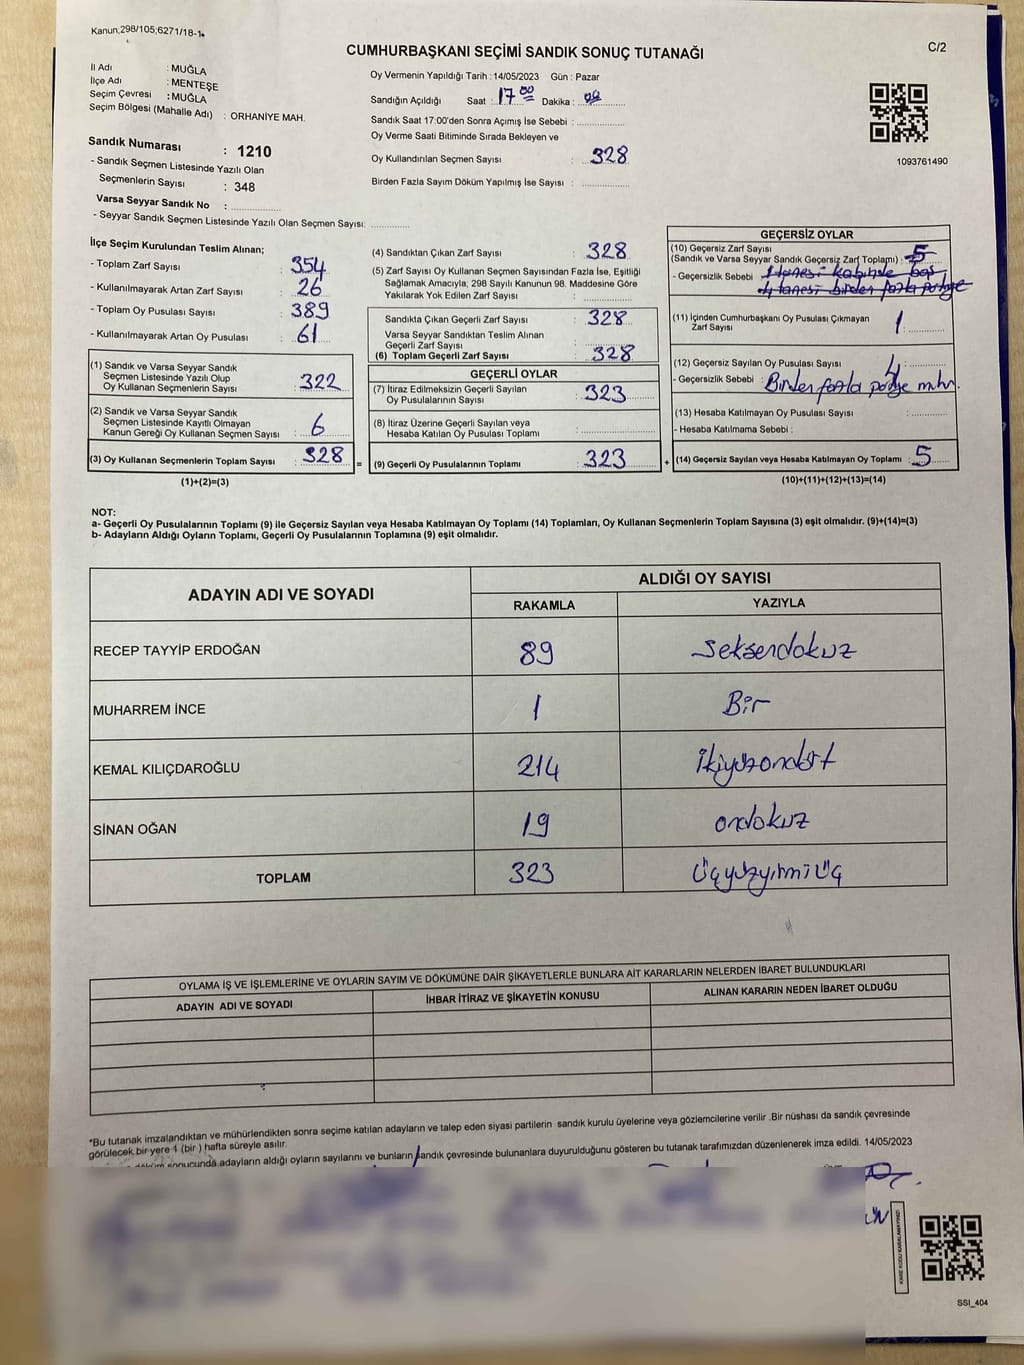 Kanun;298/105;6271/18-1
CUMHURBAŞKANI SEÇİMİ SANDIK SONUÇ TUTANAĞI
C/2
İl Adı : MUĞLA
İlçe Adı : MENTEŞE
Seçim Çevresi : MUĞLA
Seçim Bölgesi (Mahalle Adı) : ORHANİYE MAH.
Sandık Numarası : 1210
- Sandık Seçmen Listesinde Yazılı Olan
Seçmenlerin Sayısı : 348
Varsa Seyyar Sandık No :
- Seyyar Sandık Seçmen Listesinde Yazılı Olan Seçmen Sayısı:
Oy Vermenin Yapıldığı Tarih : 14/05/2023 Gün : Pazar
Sandığın Açıldığı Saat : 17 00 Dakika :
Sandık Saat 17:00'den Sonra Açımış İse Sebebi :
Oy Verme Saati Bitiminde Sırada Bekleyen ve
Oy Kullandırılan Seçmen Sayısı : 328
Birden Fazla Sayım Döküm Yapılmış İse Sayısı :
1093761490
İlçe Seçim Kurulundan Teslim Alınan;
- Toplam Zarf Sayısı : 354
- Kullanılmayarak Artan Zarf Sayısı : 26
- Toplam Oy Pusulası Sayısı : 389
- Kullanılmayarak Artan Oy Pusulası : 61
(1) Sandık ve Varsa Seyyar Sandık
Seçmen Listesinde Yazılı Olup
Oy Kullanan Seçmenlerin Sayısı : 322
(2) Sandık ve Varsa Seyyar Sandık
Seçmen Listesinde Kayıtlı Olmayan
Kanun Gereği Oy Kullanan Seçmen Sayısı : 6
(3) Oy Kullanan Seçmenlerin Toplam Sayısı : 328
(1)+(2)=(3)
(4) Sandıktan Çıkan Zarf Sayısı : 328
(5) Zarf Sayısı Oy Kullanan Seçmen Sayısından Fazla İse, Eşitliği
Sağlamak Amacıyla, 298 Sayılı Kanunun 98. Maddesine Göre
Yakılarak Yok Edilen Zarf Sayısı :
Sandıkta Çıkan Geçerli Zarf Sayısı : 328
Varsa Seyyar Sandıktan Teslim Alınan
Geçerli Zarf Sayısı :
(6) Toplam Geçerli Zarf Sayısı : 328
GEÇERLİ OYLAR
(7) İtiraz Edilmeksizin Geçerli Sayılan
Oy Pusulalarının Sayısı : 323
(8) İtiraz Üzerine Geçerli Sayılan veya
Hesaba Katılan Oy Pusulası Toplamı :
= (9) Geçerli Oy Pusulalarının Toplamı : 323
GEÇERSİZ OYLAR
(10) Geçersiz Zarf Sayısı
(Sandık ve Varsa Seyyar Sandık Geçersiz Zarf Toplamı) : 5
- Geçersizlik Sebebi : 1 tanesi kabinde boş
4 tanesi birden fazla pusulaya
(11) İçinden Cumhurbaşkanı Oy Pusulası Çıkmayan
Zarf Sayısı : 1
(12) Geçersiz Sayılan Oy Pusulası Sayısı : 4
- Geçersizlik Sebebi : Birden fazla
(13) Hesaba Katılmayan Oy Pusulası Sayısı :
- Hesaba Katılmama Sebebi :
+ (14) Geçersiz Sayılan veya Hesaba Katılmayan Oy Toplamı : 5
(10)+(11)+(12)+(13)=(14)
NOT:
a- Geçerli Oy Pusulalarının Toplamı (9) ile Geçersiz Sayılan veya Hesaba Katılmayan Oy Toplamı (14) Toplamları, Oy Kullanan Seçmenlerin Toplam Sayısına (3) eşit olmalıdır. (9)+(14)=(3)
b- Adayların Aldığı Oyların Toplamı, Geçerli Oy Pusulalarının Toplamına (9) eşit olmalıdır.
ADAYIN ADI VE SOYADI
ALDIĞI OY SAYISI
RAKAMLA YAZIYLA
RECEP TAYYİP ERDOĞAN 89 Seksendokuz
MUHARREM İNCE 1 Bir
KEMAL KILIÇDAROĞLU 214 İkiyüzondört
SİNAN OĞAN 19 ondokuz
TOPLAM 323 Üçyüzyirmi Üç
OYLAMA İŞ VE İŞLEMLERİNE VE OYLARIN SAYIM VE DÖKÜMÜNE DAİR ŞİKAYETLERLE BUNLARA AİT KARARLARIN NELERDEN İBARET BULUNDUKLARI
ADAYIN ADI VE SOYADI İHBAR İTİRAZ VE ŞİKAYETİN KONUSU ALINAN KARARIN NEDEN İBARET OLDUĞU
*Bu tutanak imzalandıktan ve mühürlendikten sonra seçime katılan adayların ve talep eden siyasi partilerin sandık kurulu üyelerine veya gözlemcilerine verilir .Bir nüshası da sandık çevresinde
görülecek bir yere 1 (bir ) hafta süreyle asılır.
döküm sonucunda adayların aldığı oyların sayılarını ve bunların sandık çevresinde bulunanlara duyurulduğunu gösteren bu tutanak tarafımızdan düzenlenerek imza edildi. 14/05/2023
ÜN
KARE KODU KARALAMAYINIZ!
SSI_404